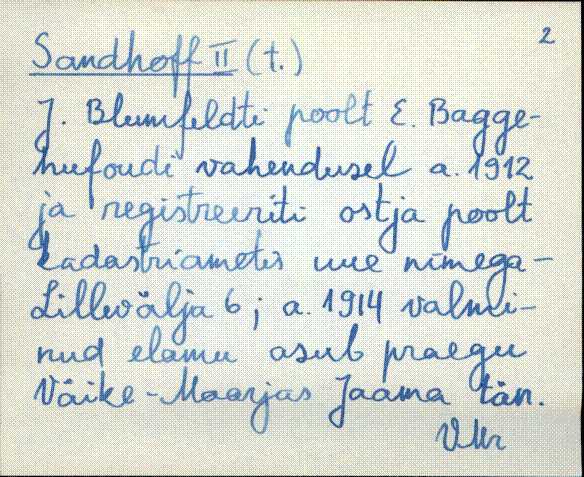 2
Sandhoff II (t.)
J. Blumfeldti poolt E. Bagge-
hufoudi vahendusel a. 1912
ja registreeriti ostja poolt
kadastriametis uue nimega -
Lillevälja 6; a. 1914 valmi-
nud elamu asub praegu
Väike-Maarjas Jaama tän.
VMr